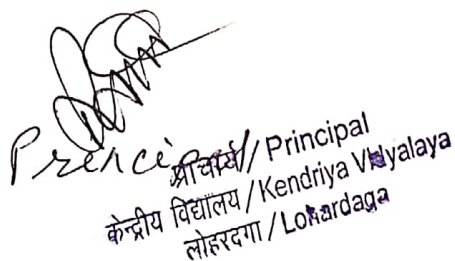 Principal
प्राचार्य / Principal
केन्द्रीय विद्यालय / Kendriya Vidyalaya
लोहरदगा / Lohardaga